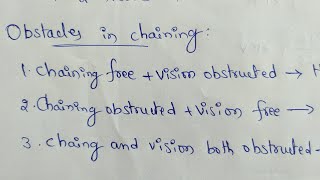 Obstacles in chaining:
1. Chaining free + vision obstructed → H
2. Chaining obstructed + vision free →
3. Chaing and vision both obstructed -